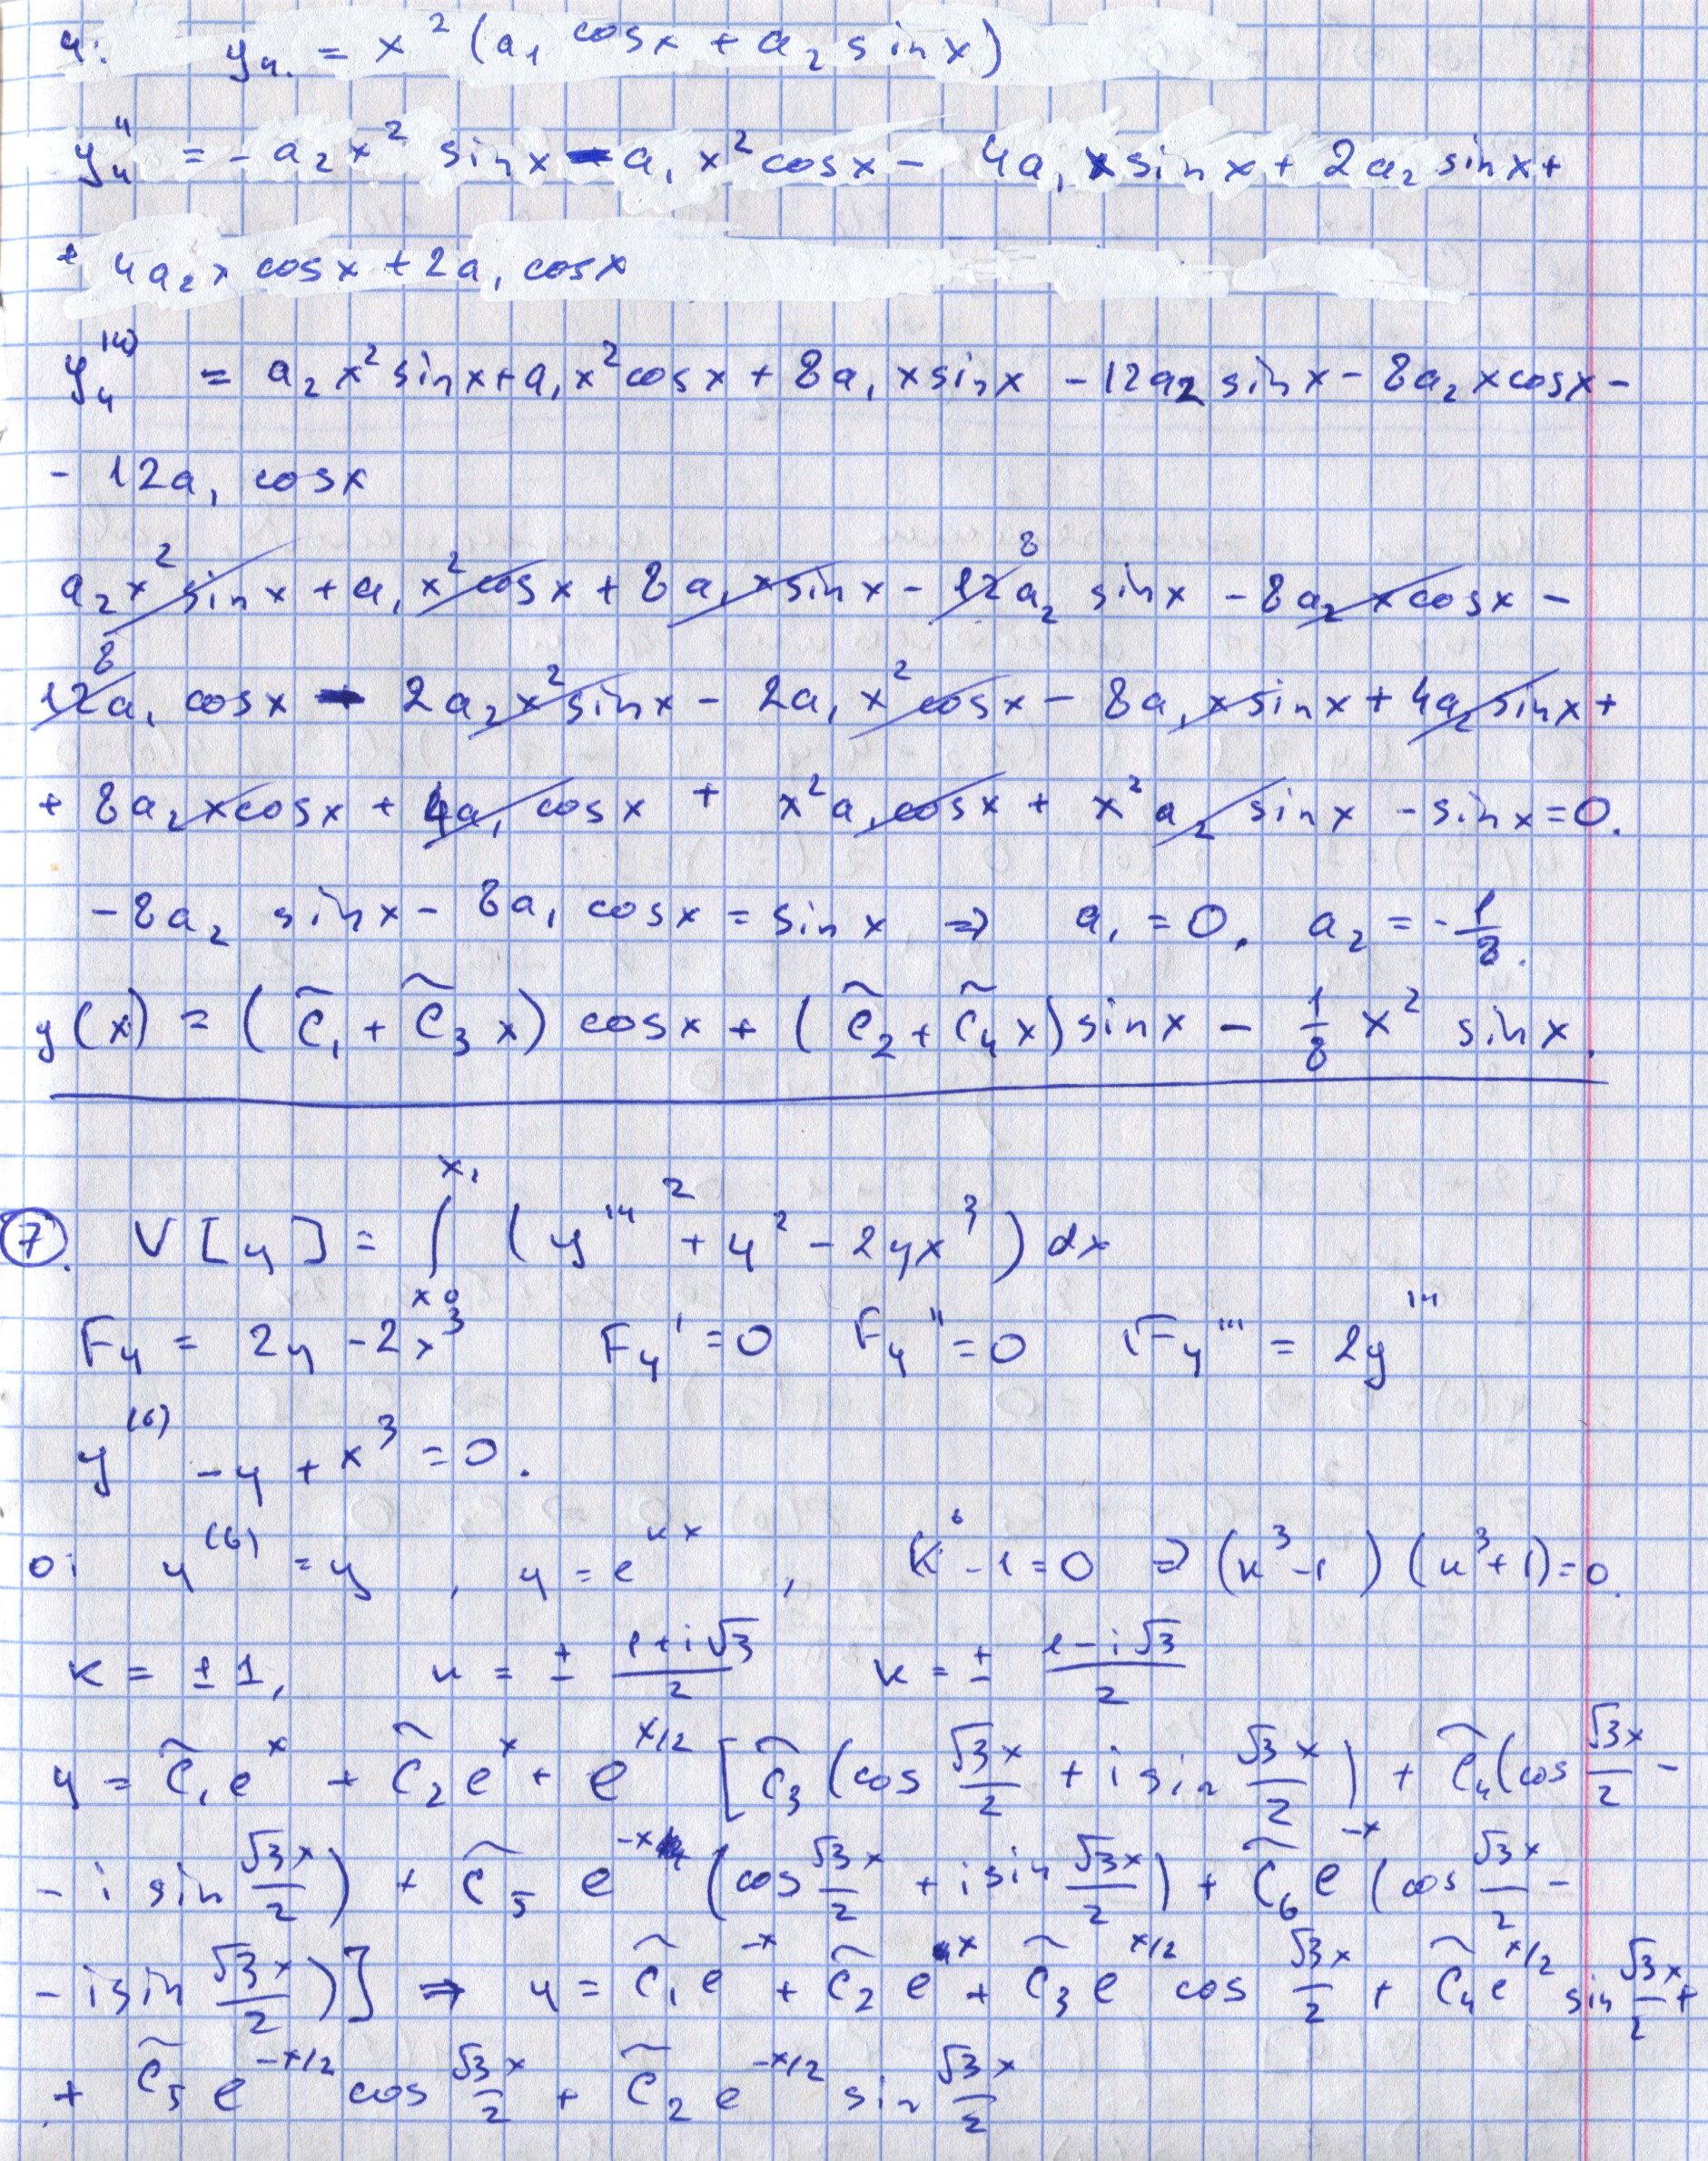 ч: yч. = x² (a₁ cosx + a₂ sinx)
yч'' = - a₂x² sinx - a₁ x² cosx - 4a₁ x sinx + 2a₂ sinx +
+ 4a₂x cosx + 2a₁ cosx
yч⁽ⁱᵛ⁾ = a₂x² sinx + a₁x² cosx + 8a₁ x sinx - 12a₂ sinx - 8a₂ x cosx -
- 12a₁ cosx
a₂x² sinx + a₁x² cosx + 8a₁ x sinx - 12 8 a₂ sinx - 8a₂ x cosx -
12 8 a₁ cosx - 2a₂x² sinx - 2a₁ x² cosx - 8a₁ x sinx + 4a₂ sinx +
+ 8a₂ x cosx + 4a₁ cosx + x²a₁ cosx + x²a₂ sinx - sinx = 0.
-8a₂ sinx - 8a₁ cosx = sinx ⇒ a₁ = 0. a₂ = -1/8.
y(x) = (C̃₁ + C̃₃x) cosx + (C̃₂ + C̃₄x) sinx - 1/8 x² sinx.
7. V[y] = ∫ₓ₀ˣ¹ (y'''² + y² - 2yx³) dx
Fy = 2y - 2x³ Fy' = 0 Fy'' = 0 Fy''' = 2y'''
y⁽⁶⁾ - y + x³ = 0.
о: y⁽⁶⁾ = y, y = eᵏˣ, k⁶ - 1 = 0 ⇒ (k³ - 1)(k³ + 1) = 0.
k = ±1, k = ± (1+i√3)/2 k = ± (1-i√3)/2
y = C̃₁eˣ + C̃₂eˣ + e^(x/2) [C̃₃(cos √3x/2 + i sin √3x/2) + C̃₄(cos √3x/2 -
- i sin √3x/2) + C̃₅ e^(-x) (cos √3x/2 + i sin √3x/2) + C̃₆ e^(-x) (cos √3x/2 -
- i sin √3x/2)] ⇒ y = C̃₁e^(-x) + C̃₂eˣ + C̃₃e^(x/2) cos √3x/2 + C̃₄e^(x/2) sin √3x/2 +
+ C̃₅e^(-x/2) cos √3x/2 + C̃₂e^(-x/2) sin √3x/2